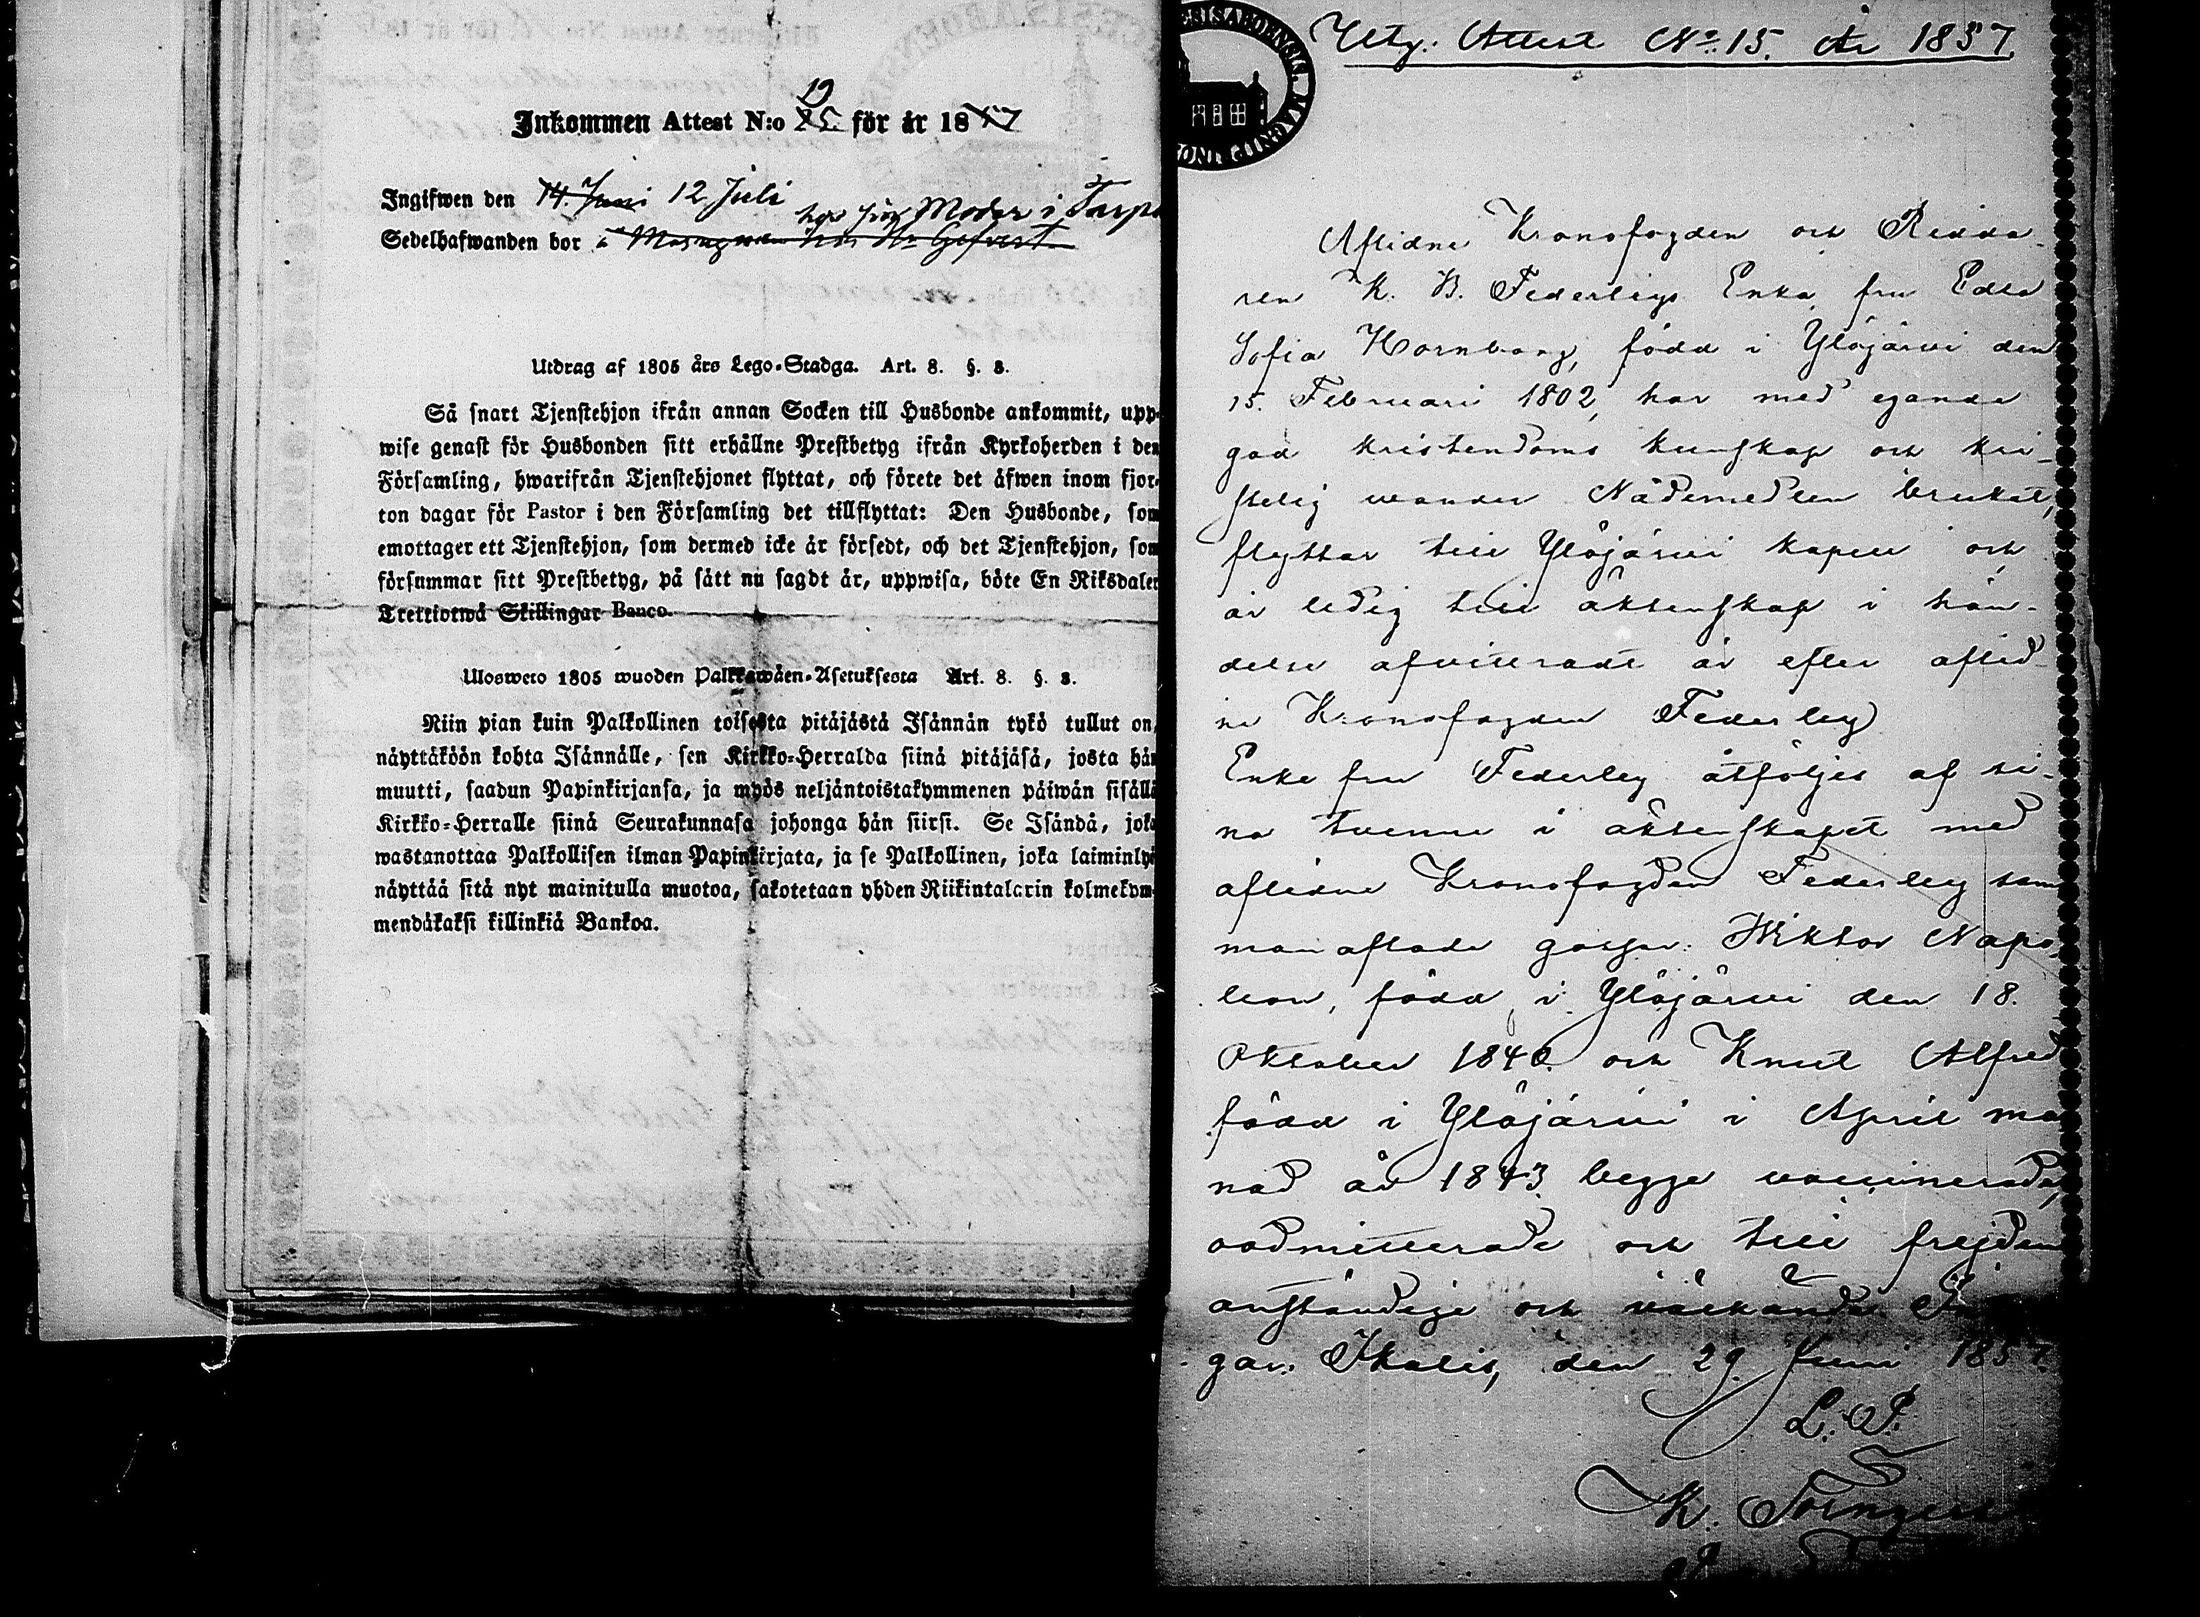 19
Inkommen Attest N:o 25. för år 1857
Ingifwen den 14. Juni 12 Juli
hos sin Moder i
Sedelhafwanden bor
Utdrag af 1805 års Lego-Stadga. Art. 8. §. 3.
Så snart Tjenstehjon ifrån annan Socken till Husbonde ankommit, upp-
wise genast för Husbonden sitt erhållne Prestbetyg ifrån Kyrkoherden i den
Församling, hwarifrån Tjenstehjonet flyttat, och förete det äfwen inom fjor-
ton dagar för Pastor i den Församling det tillflyttat: Den Husbonde, som
emottager ett Tjenstehjon, som dermed icke är försedt, och det Tjenstehjon, som
försummar sitt Prestbetyg, på sätt nu sagdt är, uppwisa, böte En Riksdaler
Trettiotwå Skillingar Banco.
Ulosweto 1805 wuoden Palkkawäen-Asetuksesta Art. 8. §. 3.
Niin pian kuin Palkollinen toisesta pitäjästä Isännän tykö tullut on,
näyttäköön kohta Isännälle, sen Kirkko-Herralda siinä pitäjäsä, josta hän
muutti, saadun Papinkirjansa, ja myös neljäntoistakymmenen päiwän sisällä
Kirkko-Herralle siinä Seurakunnasa johonga hän siirsi. Se Isändä, joka
wastanottaa Palkollisen ilman Papinkirjata, ja se Palkollinen, joka laiminlyö
näyttää sitä nyt mainitulla muotoa, sakotetaan yhden Riikintalarin kolmekym-
mendäkaksi killinkiä Bankoa.
Utg. Attest No. 15. År 1857
Aflidne Kronofogden och Ridda-
ren K. B. Federleys Enka, fru Edla
Sofia Hornborg, född i Ylöjärwi den
15. Februari 1802, har med egande
god kristendoms kunskap och kri-
stelig wandel Nådemedlen brukat,
flyttar till Ylöjärwi kapell och
är ledig till äktenskap i hän-
delse afvittradt är efter aflid-
ne Kronofogden Federley
Enke fru Federley åtföljes af si-
na tvenne i äktenskapet med
aflidne Kronofogden Federley sam-
manaflade gossar: Wiktor Napo-
leon, född i Ylöjärwi den 18.
Oktober 1840. och Knut Alfred
född i Ylöjärwi i April må-
nad år 1843. begge vaccinerade,
oadmitterade och till frejden
anständige och välkände
gar. Ikalis, den 29 Juni 1857.
L. P.
K.